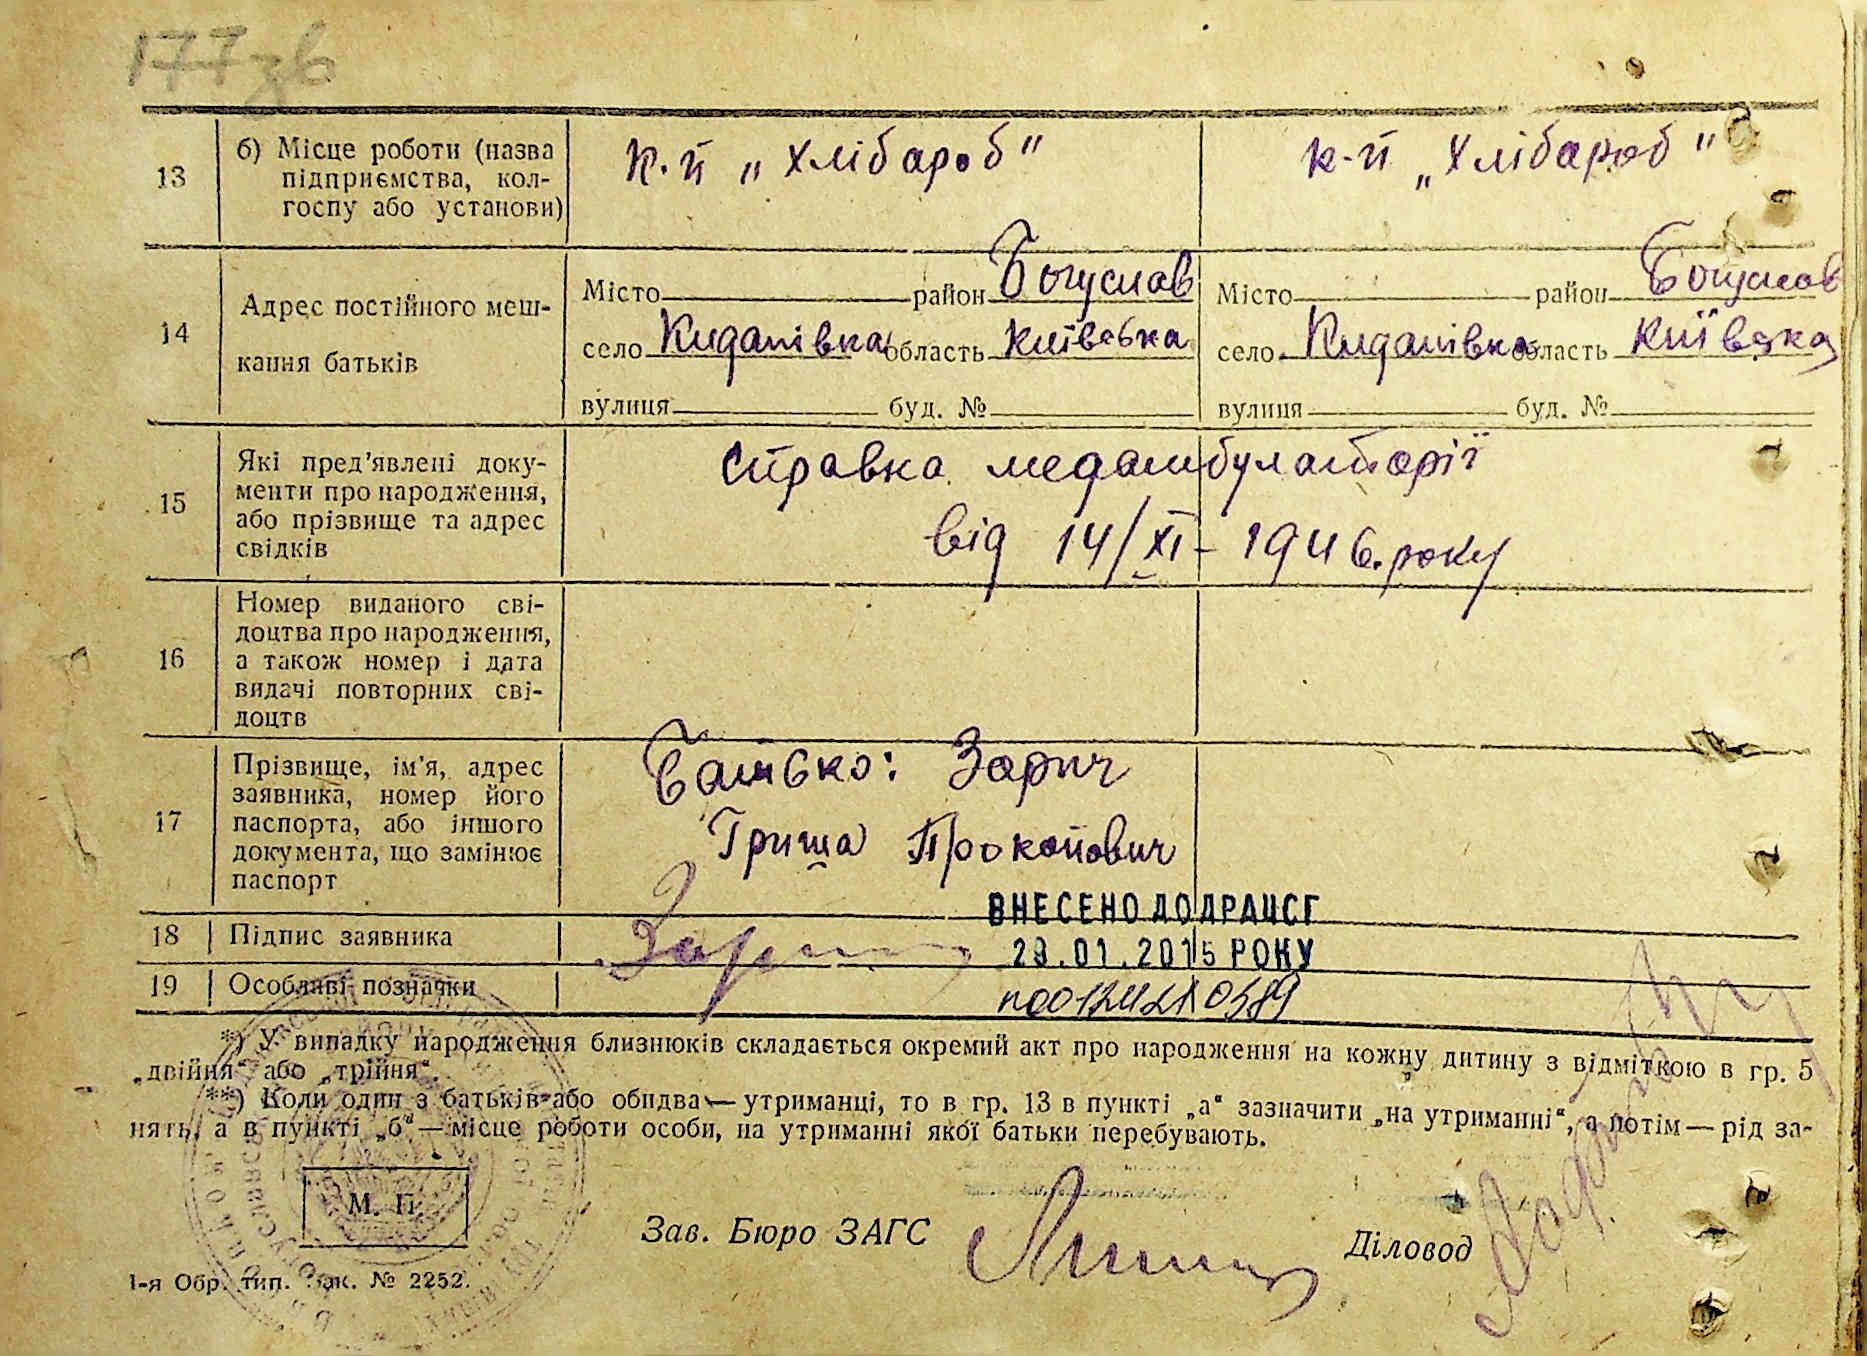 177зв
13 б) Місце роботи (назва підприємства, кол-
госпу або установи)
к-п „Хлібароб" к-п „Хлібароб"
14 Адрес постійного меш-
кання батьків
Місто район Богуслав Місто район Богуслав
село Киданівка область Київська село Киданівка область Київська
вулиця буд. № вулиця буд. №
15 Які пред'явлені доку-
менти про народження,
або прізвище та адрес
свідків
Справка медамбулаторії
від 14/XI - 1946. року
16 Номер виданого сві-
доцтва про народження,
а також номер і дата
видачі повторних сві-
доцтв
17 Прізвище, ім'я, адрес
заявника, номер його
паспорта, або іншого
документа, що замінює
паспорт
Батько: Зарич
Гриша Прокопович
18 Підпис заявника
ВНЕСЕНО ДО ДРАЦСГ
23.01.2015 РОКУ
19 Особливі позначки
*) У випадку народження близнюків складається окремий акт про народження на кожну дитину з відміткою в гр. 5
„двійня" або „трійня".
**) Коли один з батьків або обидва — утриманці, то в гр. 13 в пункті „а" зазначити „на утриманні", а потім — рід за-
нять, а в пункті „б" — місце роботи особи, на утриманні якої батьки перебувають.
М. П.
Зав. Бюро ЗАГС Діловод
1-я Обр. тип. Зак. № 2252.